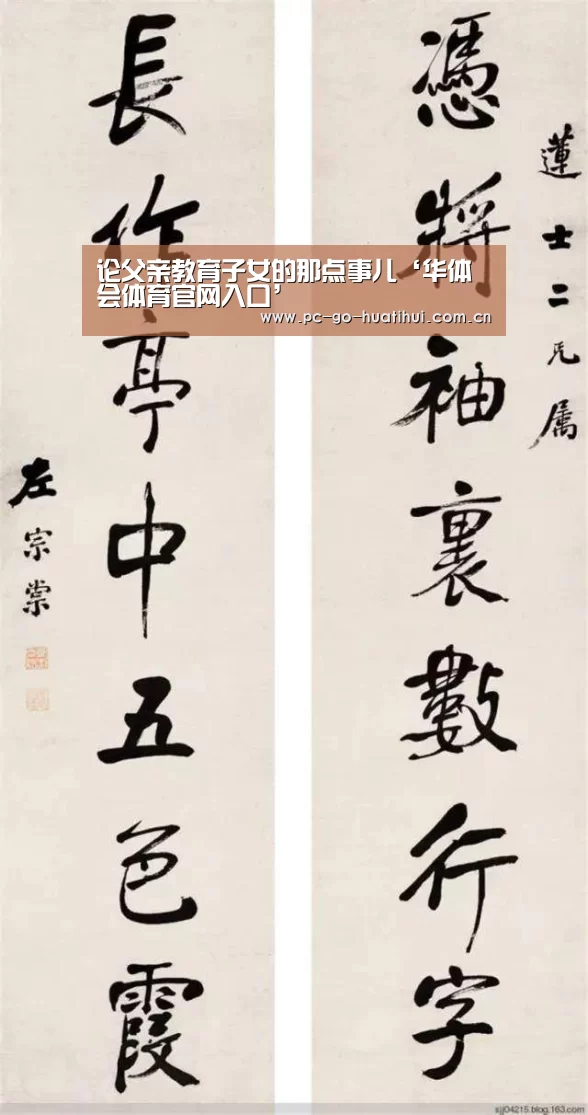 蓮士二兄属
憑將袖裏數行字
長作亭中五色霞
左宗棠
论父亲教育子女的那点事儿‘华体
会体育官网入口’
www.pc-go-huatihui.com.cn
sjj04215.blog.163.com